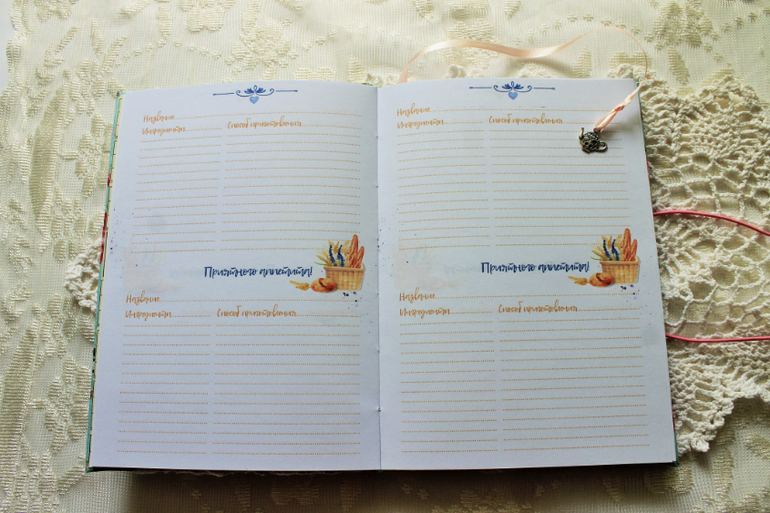 Название
Ингредиенты Способ приготовления
Приятного аппетита!
Название
Ингредиенты Способ приготовления
Название
Ингредиенты Способ приготовления
Приятного аппетита!
Название
Ингредиенты Способ приготовления